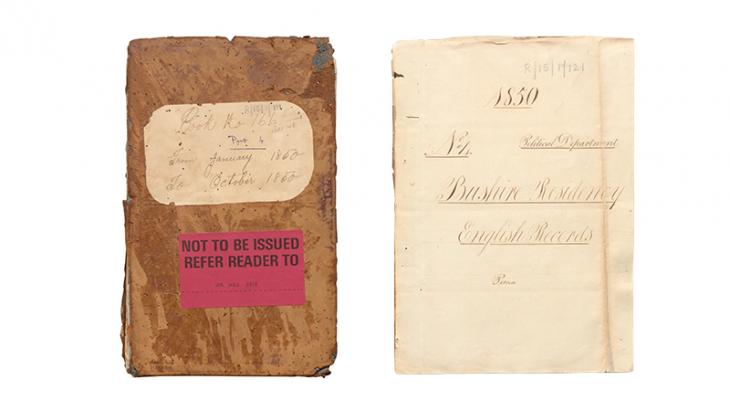 Book No 166
Part 4
From January 1850
To October 1850
NOT TO BE ISSUED
REFER READER TO
R/15/1/121
1850
No 1.
Political Department
Bushire Residency
English Records